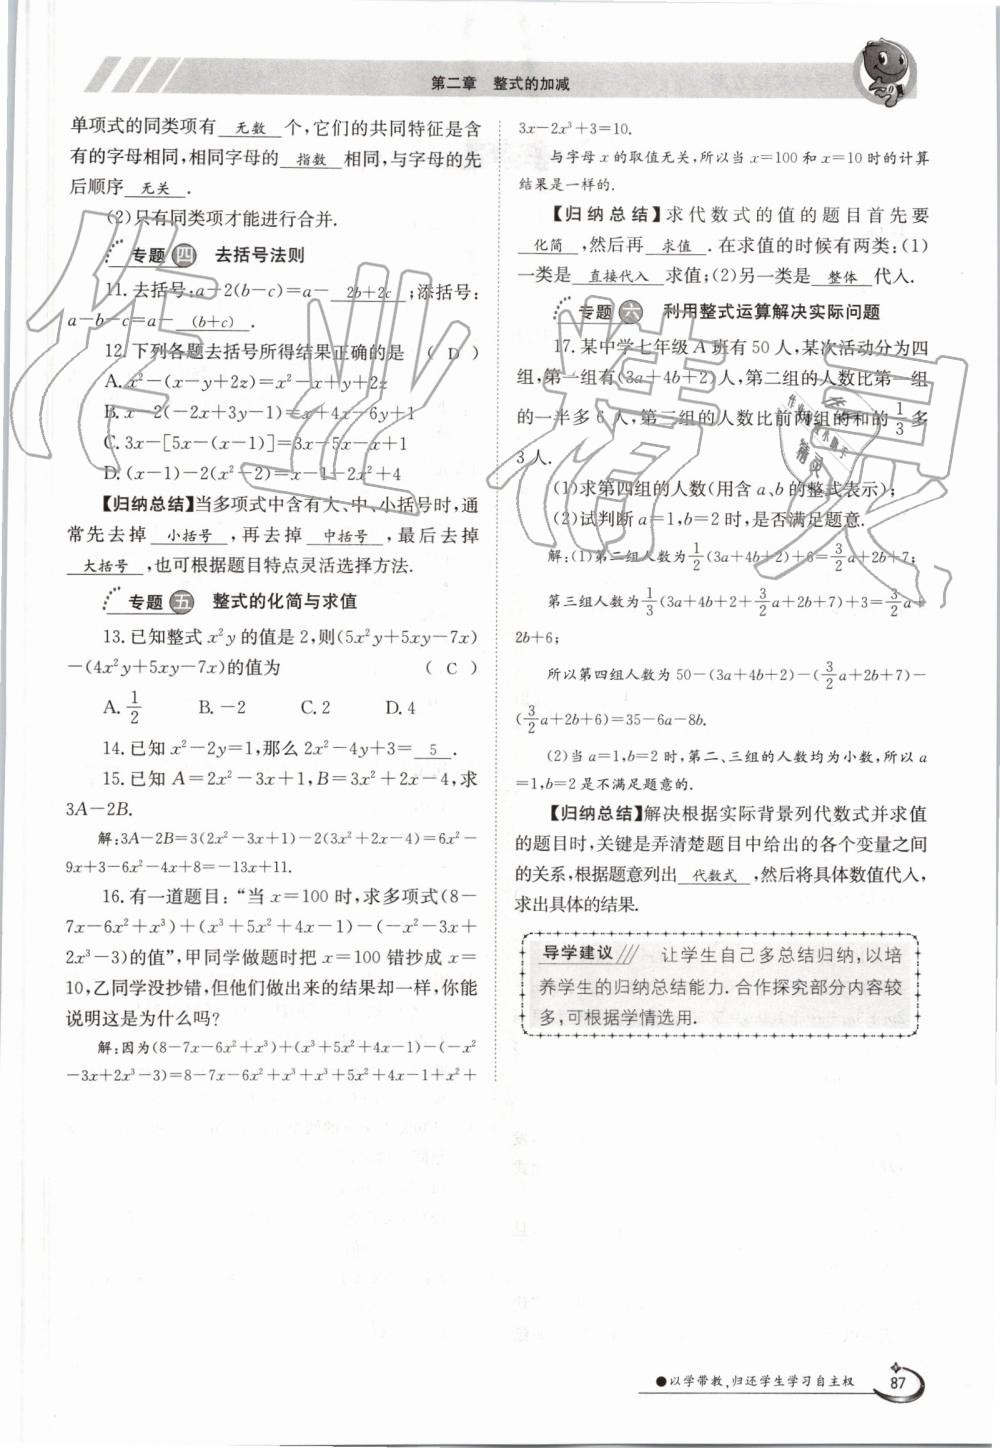 第二章 整式的加减
单项式的同类项有 无数 个,它们的共同特征是含
有的字母相同,相同字母的 指数 相同,与字母的先
后顺序 无关 .
(2)只有同类项才能进行合并.
专题 四 去括号法则
11.去括号:a-2(b-c)=a- 2b+2c ;添括号:
a-b-c=a- (b+c) .
12.下列各题去括号所得结果正确的是 ( D )
A.x²-(x-y+2z)=x²-x+y+2z
B.x-2(-2x+3y-1)=x+4x-6y+1
C.3x-[5x-(x-1)]=3x-5x-x+1
D.(x-1)-2(x²-2)=x-1-2x²+4
【归纳总结】当多项式中含有大、中、小括号时,通
常先去掉 小括号 ,再去掉 中括号 ,最后去掉
大括号 ,也可根据题目特点灵活选择方法.
专题 五 整式的化简与求值
13.已知整式 x²y 的值是 2,则(5x²y+5xy-7x)
-(4x²y+5xy-7x)的值为 ( C )
A.1/2 B.-2 C.2 D.4
14.已知 x²-2y=1,那么 2x²-4y+3= 5 .
15.已知 A=2x²-3x+1,B=3x²+2x-4,求
3A-2B.
解:3A-2B=3(2x²-3x+1)-2(3x²+2x-4)=6x²-
9x+3-6x²-4x+8=-13x+11.
16.有一道题目:“当 x=100 时,求多项式(8-
7x-6x²+x³)+(x³+5x²+4x-1)-(-x²-3x+
2x³-3)的值”,甲同学做题时把 x=100 错抄成 x=
10,乙同学没抄错,但他们做出来的结果却一样,你能
说明这是为什么吗?
解:因为(8-7x-6x²+x³)+(x³+5x²+4x-1)-(-x²
-3x+2x³-3)=8-7x-6x²+x³+x³+5x²+4x-1+x²+
3x-2x³+3=10.
与字母 x 的取值无关,所以当 x=100 和 x=10 时的计算
结果是一样的.
【归纳总结】求代数式的值的题目首先要
化简 ,然后再 求值 .在求值的时候有两类:(1)
一类是 直接代入 求值;(2)另一类是 整体 代入.
专题 六 利用整式运算解决实际问题
17.某中学七年级 A 班有 50 人,某次活动分为四
组,第一组有(3a+4b+2)人,第二组的人数比第一组
的一半多 6 人,第三组的人数比前两组的和的 1/3 多
3 人.
(1)求第四组的人数(用含 a、b 的整式表示);
(2)试判断 a=1,b=2 时,是否满足题意.
解:(1)第二组人数为 1/2(3a+4b+2)+6=3/2a+2b+7;
第三组人数为 1/3(3a+4b+2+3/2a+2b+7)+3=3/2a+
2b+6;
所以第四组人数为 50-(3a+4b+2)-(3/2a+2b+7)-
(3/2a+2b+6)=35-6a-8b.
(2)当 a=1,b=2 时,第二、三组的人数均为小数,所以 a
=1,b=2 是不满足题意的.
【归纳总结】解决根据实际背景列代数式并求值
的题目时,关键是弄清楚题目中给出的各个变量之间
的关系,根据题意列出 代数式 ,然后将具体数值代入,
求出具体的结果.
导学建议 让学生自己多总结归纳,以培
养学生的归纳总结能力.合作探究部分内容较
多,可根据学情选用.
作业精灵
●以学带教,归还学生学习自主权 87